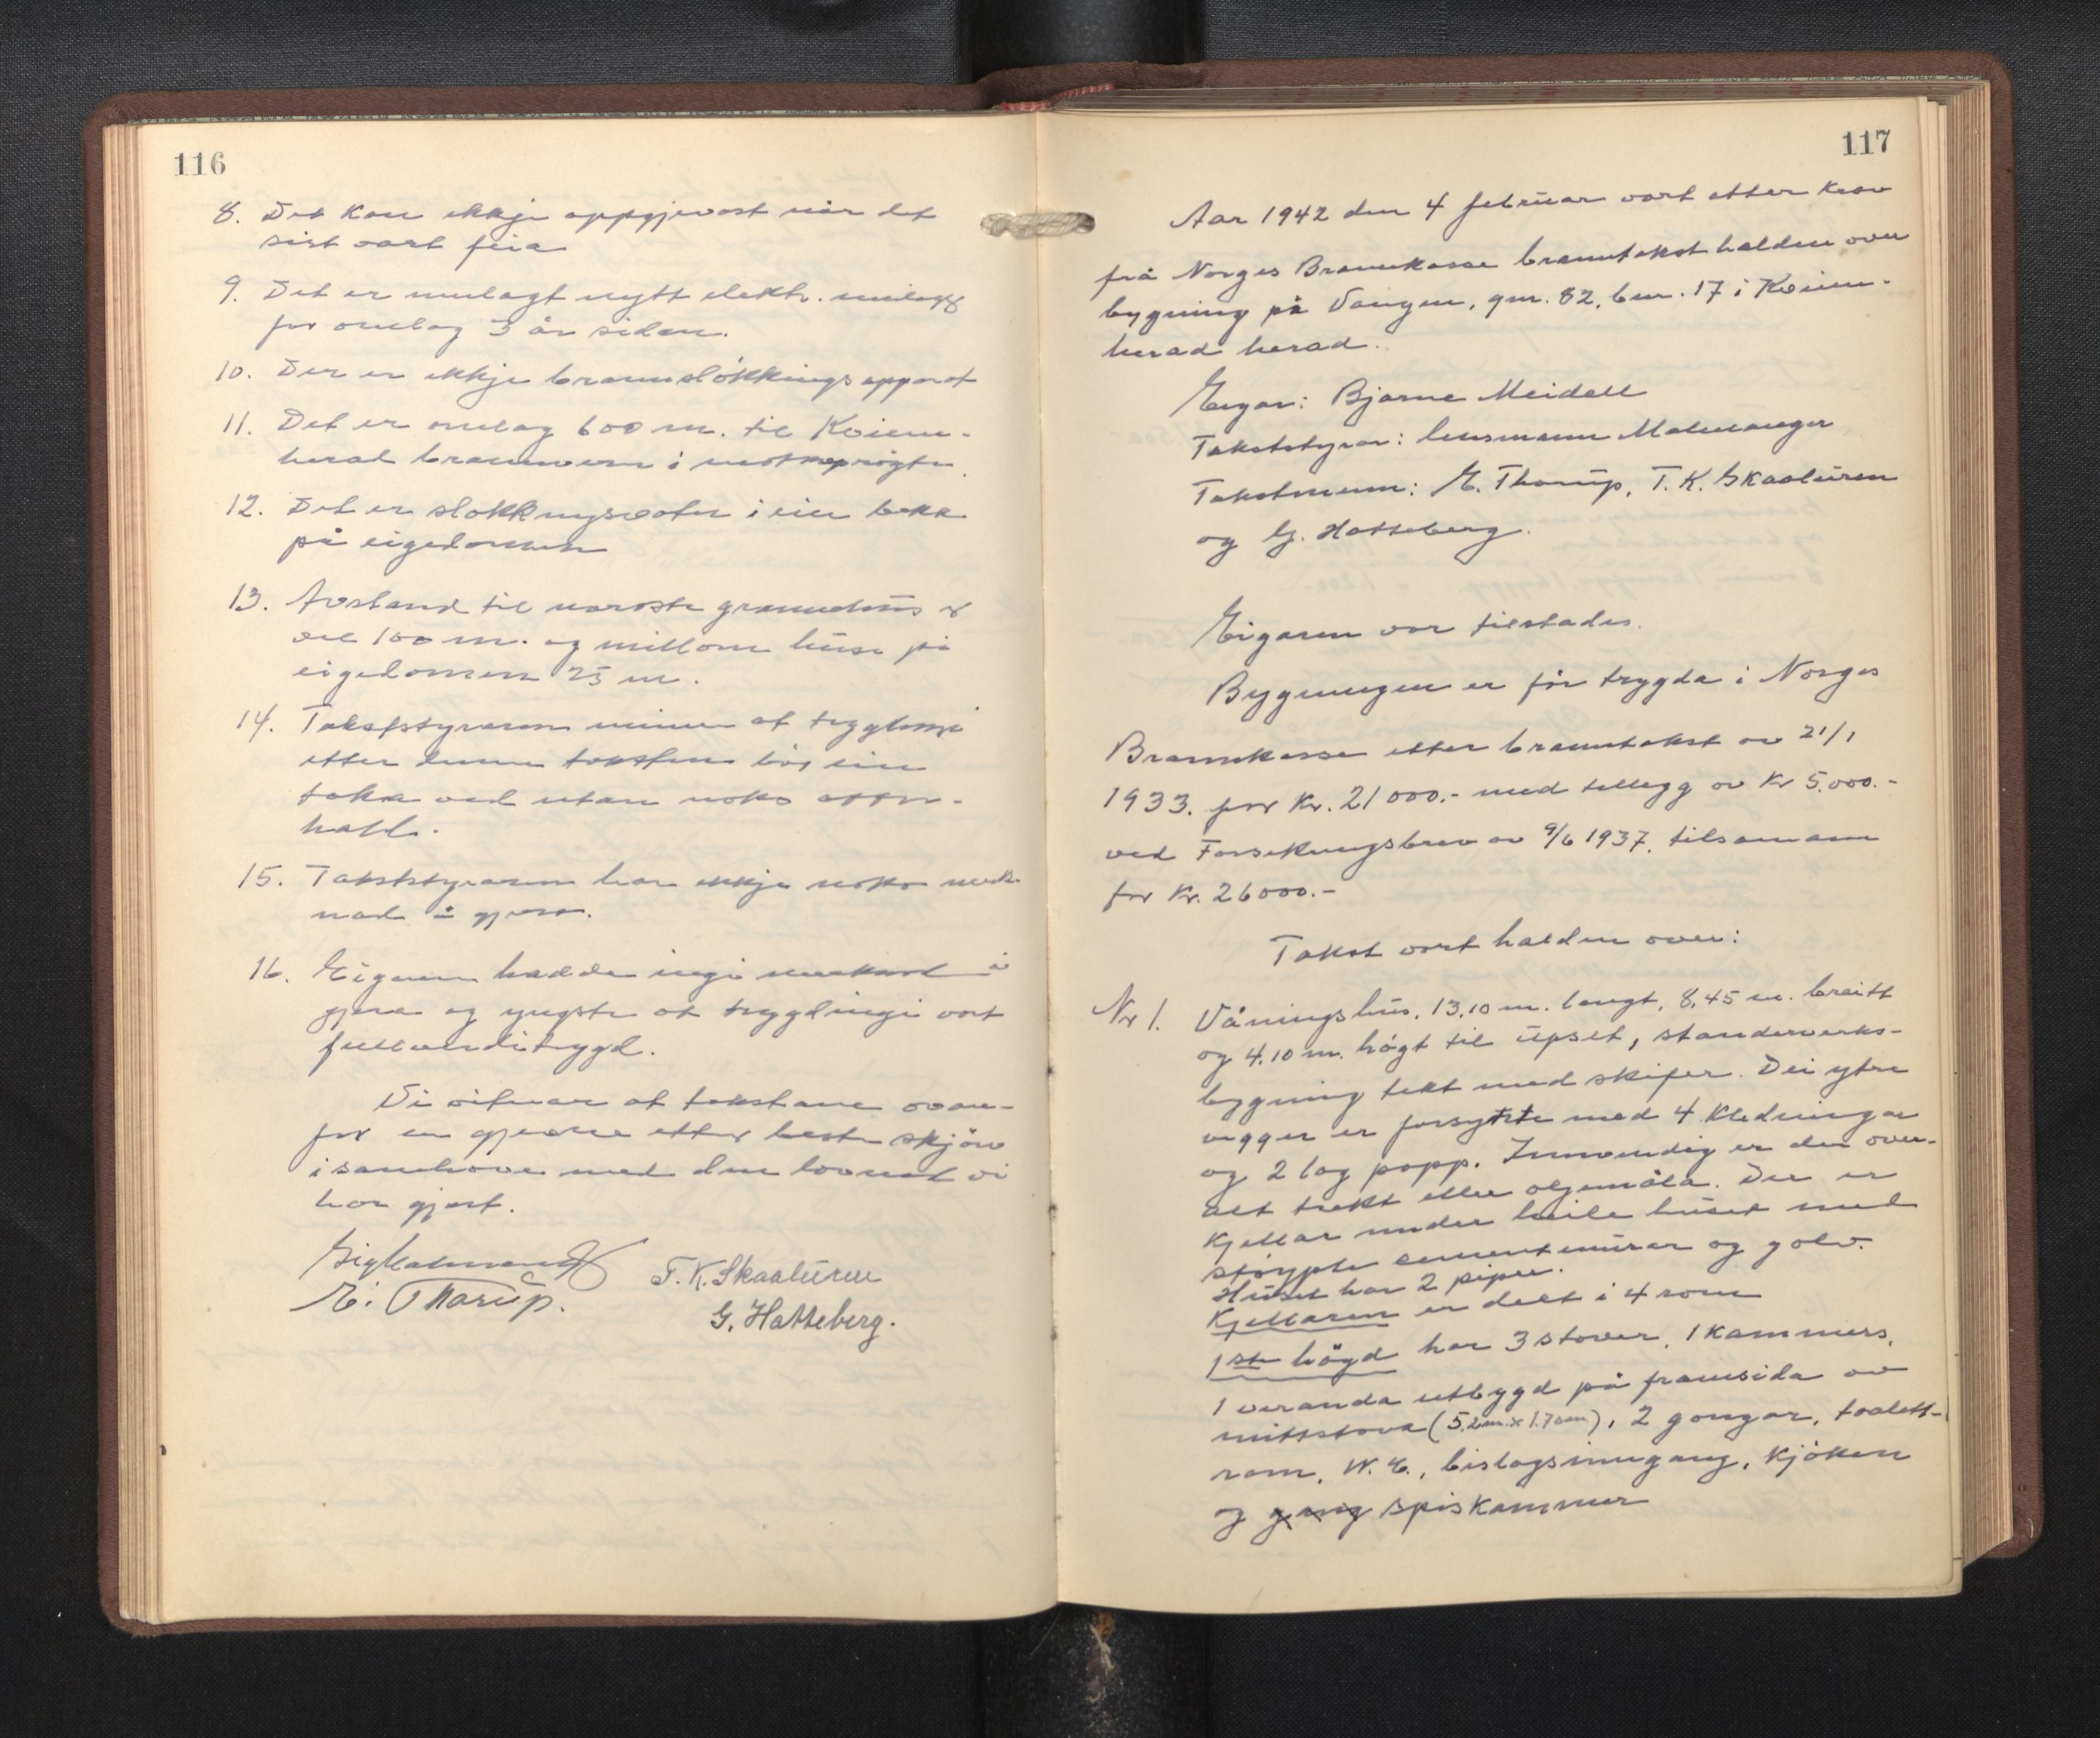 116
8. Det kan ikkje oppgjevast når det
sist vart feia
9. Det er innlagt nytt elektr. innlegg
for omlag 3 år sidan.
10. Der er ikkje brannsløkkingsapparat
11. Det er omlag 600 m. til Kvinn-
herad brannvern i
12. Det er sløkkingsvatn i ein bekk
på eigedomen
13. Avstand til næraste grannehus er
vel 100 m. og millom husa på
eigedomen 25 m.
14. Takststyraren meiner at trygdingi
etter denne taksten bør ein
taka ved utan noko atter-
hald.
15. Takststyraren har ikkje noko merk-
nad å gjera.
16. Eigaren hadde ingi merknad å
gjera og yngste at trygdingi vart
fullverditrygd.
Vi vitnar at takstane ovan-
for er gjevne etter beste skjøn
i samhøve med den lovnad vi
har gjort.
Sig Malmanger
E. Thorup.
T. K. Skaaluren
G. Hatteberg.
117
Aar 1942 den 4 februar vart etter krav
frå Norges Brannkasse branntakst halden over
bygning på Vangen, gnr. 82, bnr. 17 i Kvinn-
herad herad.
Eigar: Bjarne Meidell
Takststyrar: lensmann Malmanger
Takstmenn: E. Thorup, T. K. Skaaluren
og G. Hatteberg.
Eigaren var tilstades.
Bygningen er før trygda i Norges
Brannkasse etter branntakst av 21/1
1933. for Kr. 21000.- med tillegg av Kr 5.000.-
ved Forsikringsbrev av 9/6 1937. tilsamann
for Kr. 26000.-
Takst vart halden over:
Nr 1. Våningshus, 13,10 m. langt, 8,45 m. breitt
og 4,10 m. høgt til upset, standerverks-
bygning tekt med skifer. Dei ytre
vegger er forsynte med 4 kledningar
og 2 lag papp. Innvendig er der over-
alt trekt eller oljemåla. Der er
kjellar under heile huset med
støypte sementmurar og golv.
Huset har 2 piper.
Kjellaren er delt i 4 rom
1ste høgd har 3 stover, 1 kammers,
1 veranda utbygd på framsida av
mittstova (5.2m. x 1.70m), 2 gongar, toalett-
rom, W. C., bislagsinngang, kjøken
og gang spiskammer